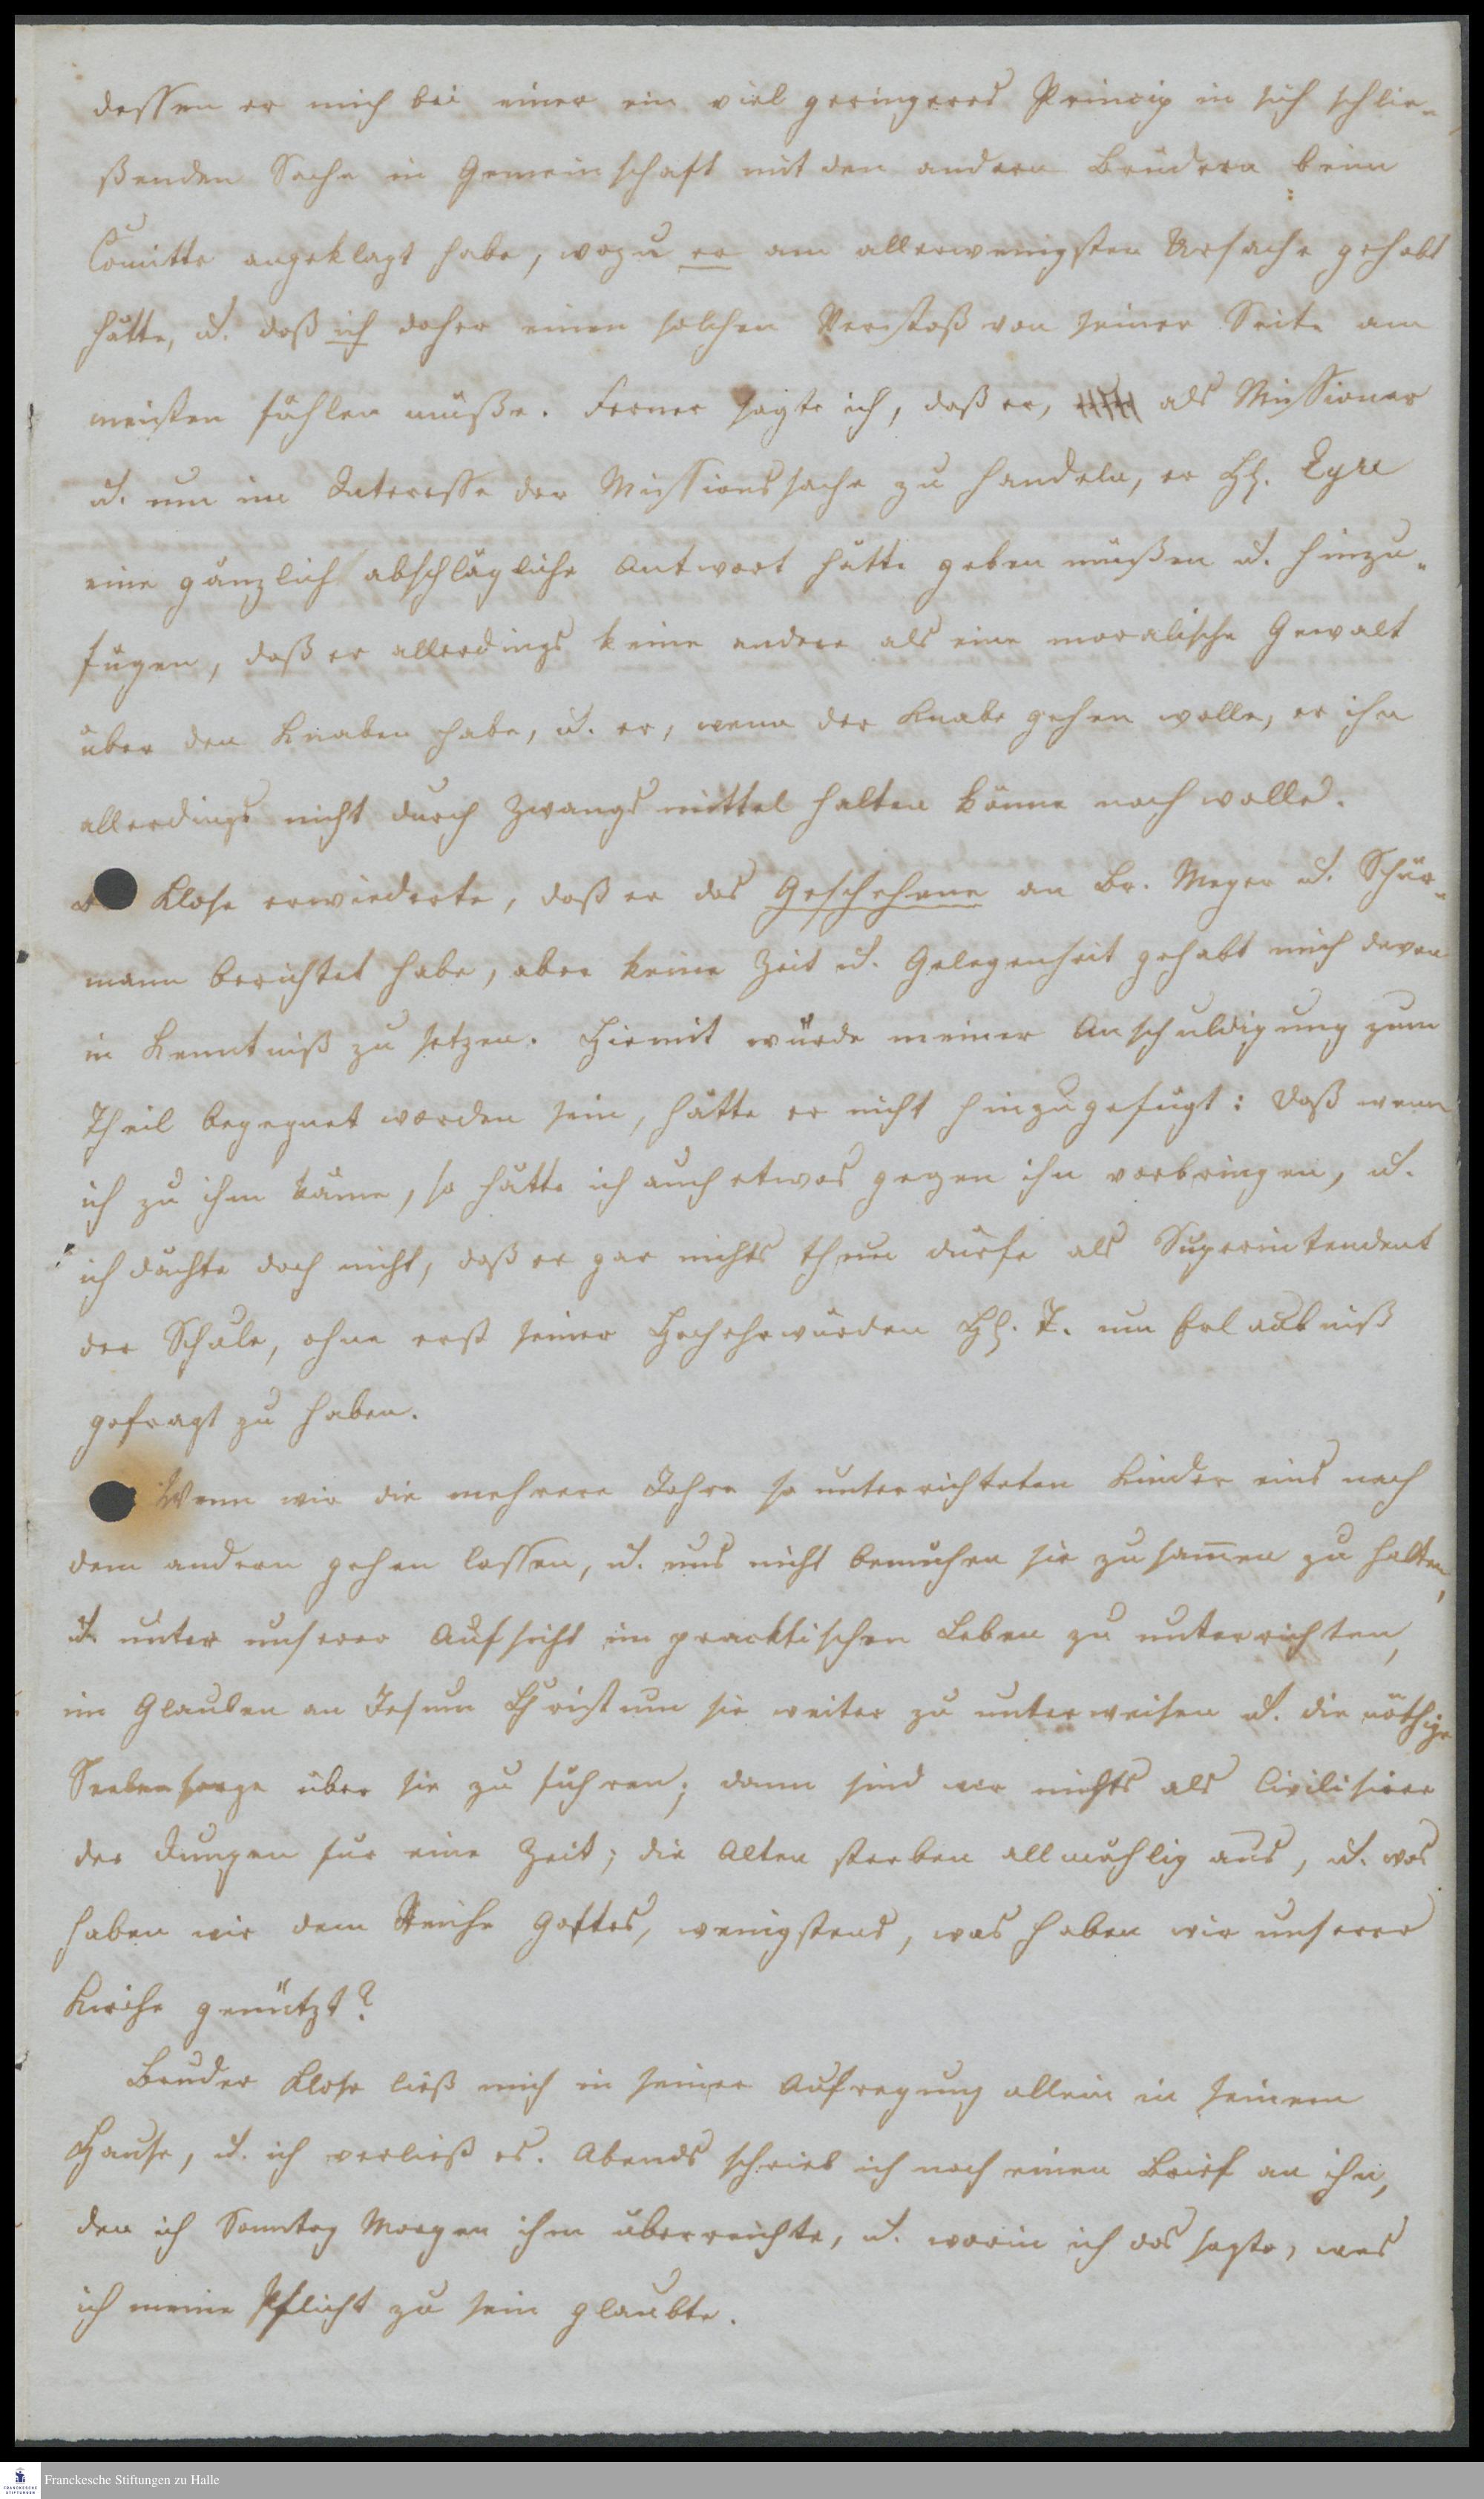 dessen er mich bei einer ein viel geringeres Princip in sich schlie-
ßenden Sache in Gemeinschaft mit den andern Brüdern beim
Comitte angeklagt habe, wozu er am allerwenigsten Ursache gehabt
hätte, u. daß ich daher einen solchen Verstoß von seiner Seite am
meisten fühlen müße. Ferner sagte ich, daß er, als Missionar
u. um im Interesse der Missionssache zu handeln, er Hl. Eyre
eine gänzlich abschlägliche Antwort hätte geben müßen u. hinzu-
fügen, daß er allerdings keine andere als eine moralische Gewalt
über den Knaben habe, u. er, wenn der Knabe gehen wolle, er ihn
allerdings nicht durch Zwangsmittel halten könne noch wolle.
Klose erwiederte, daß er das Geschehene an Br. Meyer u. Schür-
mann berichtet habe, aber keine Zeit u. Gelegenheit gehabt mich davon
in Kenntniß zu setzen. Hiermit würde meiner Anschuldigung zum
Theil begegnet worden sein, hätte er nicht hinzugefügt: daß wenn
ich zu ihm käme, so hätte ich auch etwas gegen ihn vorbringen, u.
ich dächte doch nicht, daß er gar nichts thun dürfe als Superintendent
der Schule, ohne erst seiner Hochehrwürden Hl. T. um Erlaubniß
gefragt zu haben.
Wenn wir die mehrere Jahre so unterrichteten Kinder eins nach
dem andern gehen lassen, u. uns nicht bemühen sie zusam̅en zu halten,
u. unter unserer Aufsicht im pracktischen Leben zu unterrichten,
im Glauben an Jesum Christum sie weiter zu unterweisen u. die nöthige
Seelensorge über sie zu führen; dann sind wir nichts als Civilisirer
der Jungen für eine Zeit; die Alten sterben allmählig aus, u. was
haben wir dem Reiche Gottes, wenigstens, was haben wir unserer
Kirche genützt?
Bruder Klose ließ mich in seiner Aufregung allein in seinem
Hause, u. ich verließ es. Abends schrieb ich noch einen Brief an ihn,
den ich Sonntag Morgen ihm überreichte, u. worin ich das sagte, was
ich meine Pflicht zu sein glaubte.
Franckesche Stiftungen zu Halle